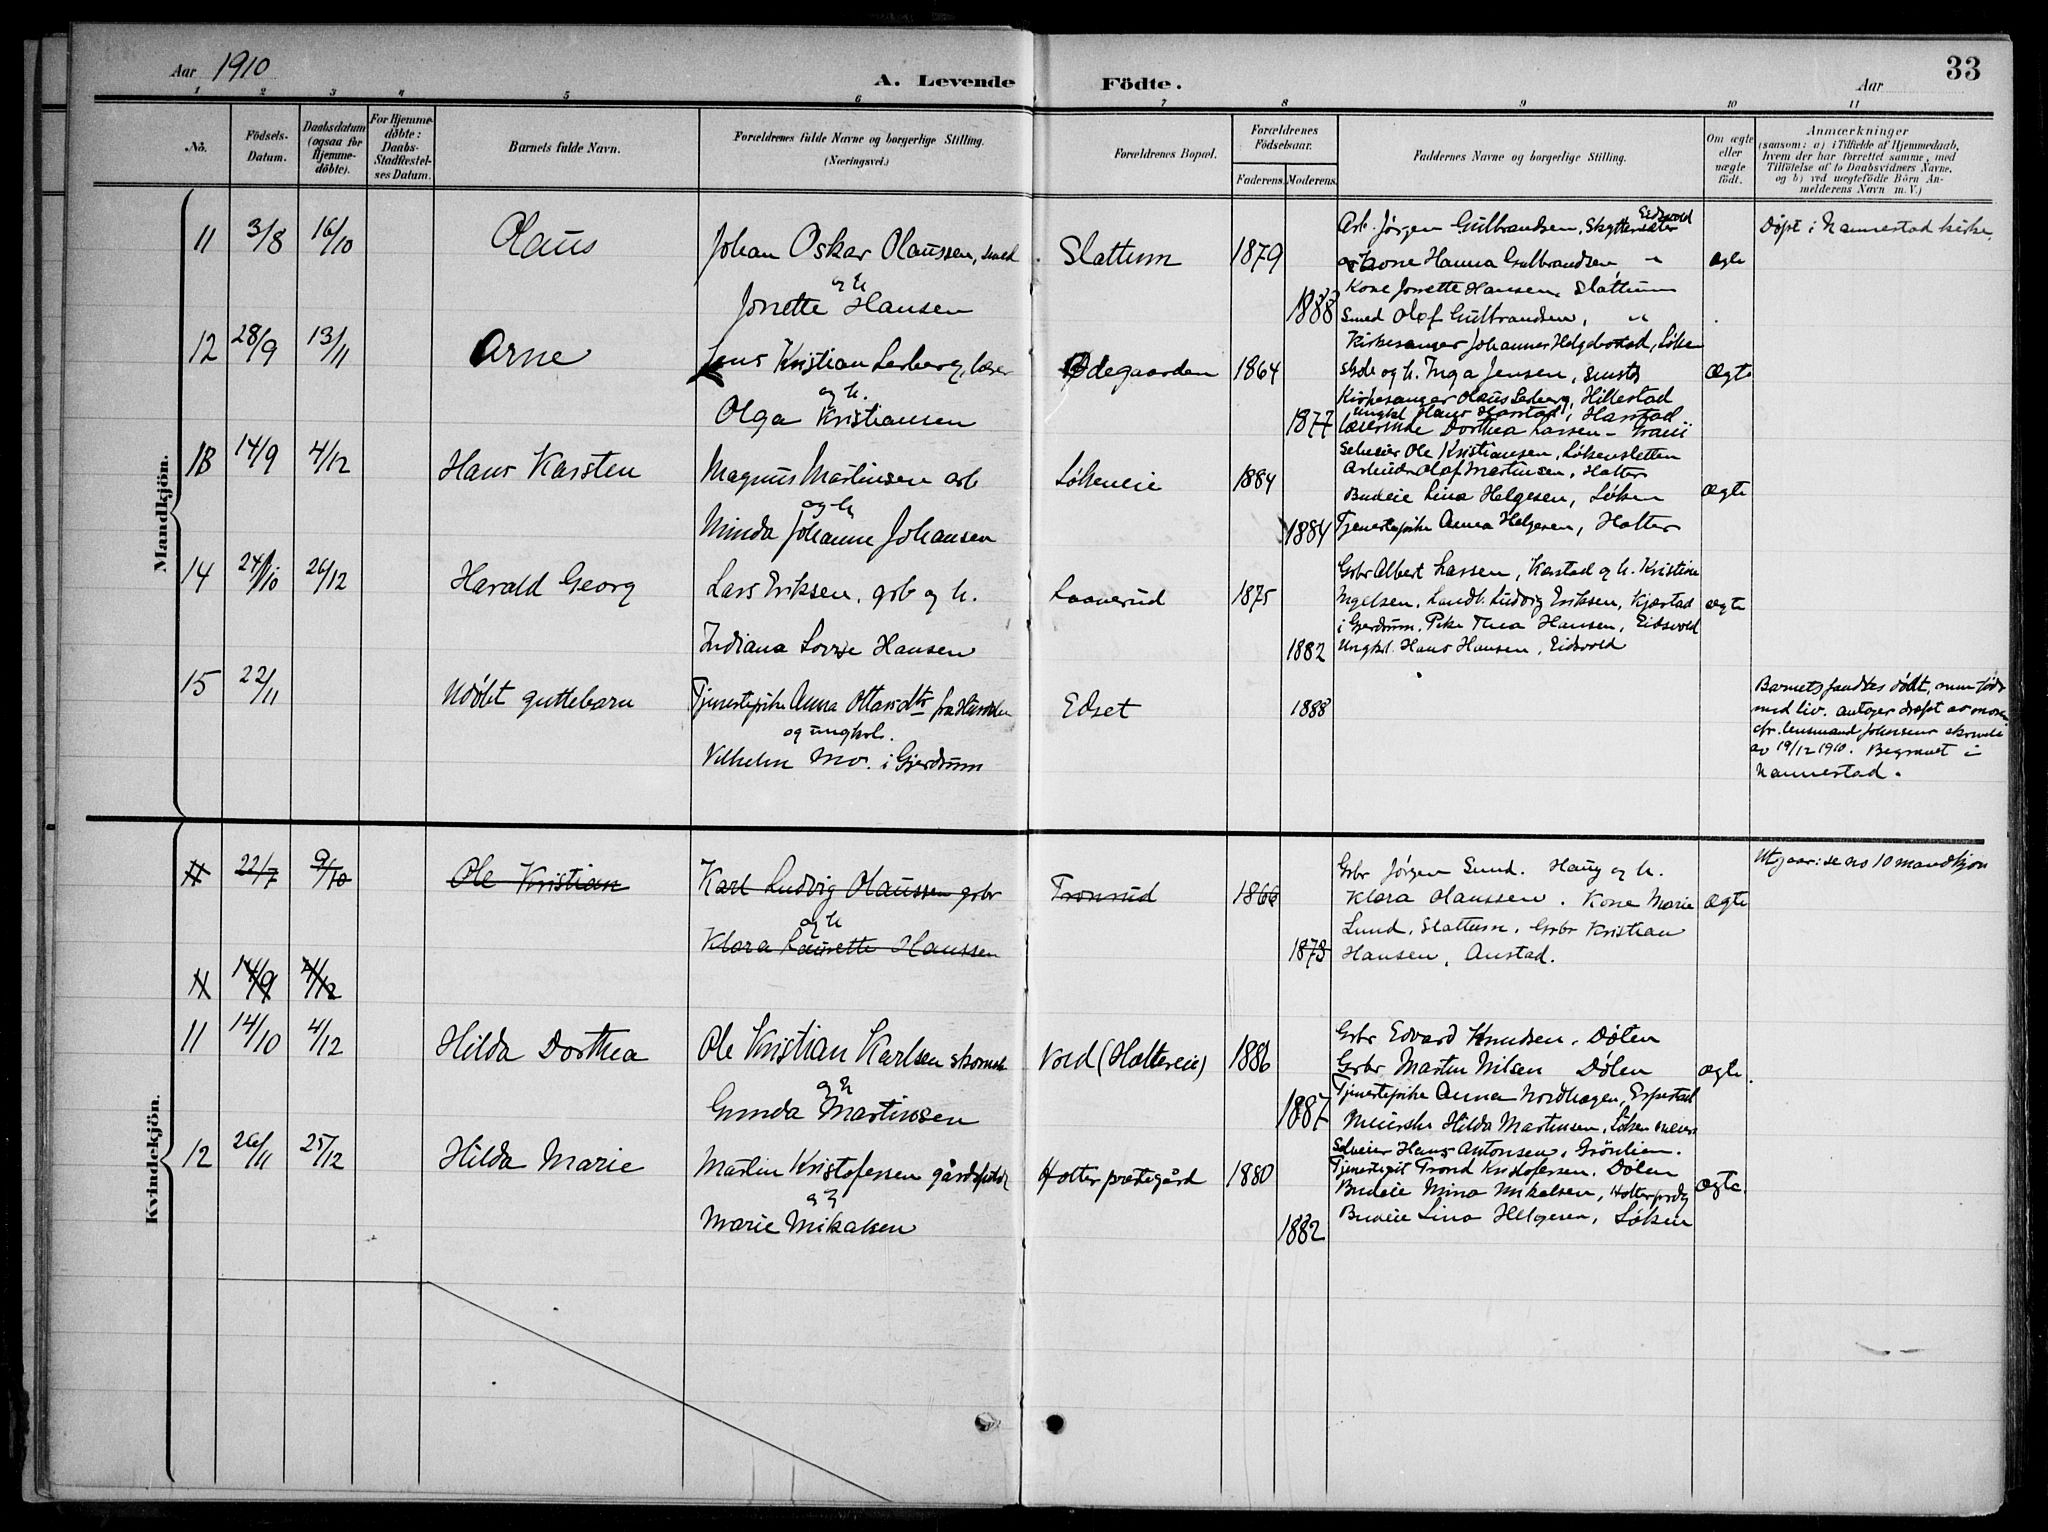 Aar 1910
A. Levende Födte.
Aar
33
1 2 3 4 5 6 7 8 9 10 11
No.
Födsels-Datum.
Daabsdatum (ogsaa for Hjemmedöbte).
For Hjemmedöbte: Daabs-Stadfæstelses Datum.
Barnets fulde Navn.
Forældrenes fulde Navne og borgerlige Stilling. (Næringsvei.)
Forældrenes Bopæl.
Forældrenes Födselsaar.
Faderens.
Moderens.
Faddernes Navne og borgerlige Stilling.
Om ægte eller uægte födt.
Anmærkninger
(saasom: a) i Tilfælde af Hjemmedaab,
hvem der har forrettet samme, med
Tilföielse af to Daabsvidners Navne,
og b) ved uægtefödte Börn Anmelderens Navn m. V.)
Mandkjön.
11 3/8 16/10 Olaus
Johan Oskar Olaussen, smed
og h
Jonette Hansen
Slattum 1879
1883
Arb. Jørgen Gulbrandsen, Skyttersæter Eidsvold
kone Hanna Gulbrandsen "
Kone Jonette Hansen, Slattum
Smed Olof Gulbrandsen, "
ægte
Døpt i Nannestad kirke.
12 28/9 13/11 Arne
Jens Kristian Lerberg, lærer
og h.
Olga Kristiansen
Ødegaarden 1864
1877
Kirkesanger Johannes Helgebostad, Løken
skole og h. Inga Jensen,
Kirkesanger Olaus Lerberg, Hillestad
Ungkl Hans Harstad, Harstad
Lærerinde Dorthea Larsen -
Ægte
13 14/9 4/12 Hans Karsten
Magnus Martinsen arb
og h
Minda Johanne Johansen
Løkeneie 1884
1884
Selveier Ole Kristiansen, Løkensletten
Arbeider Olaf Martinsen, Holter
Budeie Lina Helgesen, Løken
Tjenestepike Anna Helgesen, Holter
ægte
14 24/10 26/12 Harald Georg
Lars Eriksen, grb og h.
Indiana Lovise Hansen
Laaverud 1875
1882
Grbr Albert Larsen, Karstad og h. Kristine
Ingelsen, Landh. Ludvig Eriksen, Kjærstad
i Gjerdrum, Pike Thea Hansen, Eidsvold
Ungkl. Hans Hansen, Eidsvold
ægte
15 22/11 Udøbt guttebarn
Tjenestepike Anna Ottarsdtr fra
og ungkarl.
Vilhelm Mo. i Gjerdrum
Edset
1888
Barnet fandtes dødt, men født
med liv. antages dræpt av moren
cfr. lensmand Johansens skrivelse
av 19/12 1910. Begravet i
Nannestad.
Kvindekjön.
11 22/7 9/10 Ole Kristian
Karl Ludvig Olaussen grbr
og h
Klara Laurette Hanssen
Tronrud 1866
1873
Grbr Jørgen Sund. Haug og h.
Klara Olaussen. Kone Marie
Lund, Slattum. Grbr Kristian
Hansen, Austad.
Ægte
Utgaar: se no 10 mandkjøn
11 14/9 4/12
11 14/10 4/12 Hilda Dorthea
Ole Kristian Karlsen skomak
og h
Gunda Martinsen
Vold (Haltereie) 1886
1887
Grbr Edvard Knudsen, Dølen
Grbr Martin Nilsen Dølen
Tjenestepike Anna Nordhagen, Espestad
Meierske Hilda Martinsen, Løken meieri
ægte.
12 26/11 25/12 Hilda Marie
Martin Kristofersen
og h
Marie Mikalsen
Holter prestegård 1880
1882
Selveier Hans Antonsen, Grønlien.
Tjenestegut Trond Kristofersen, Dølen
Budeie Mina Mikalsen, Holter prestg
Budeie Lina Helgesen, Løken
Ægte.